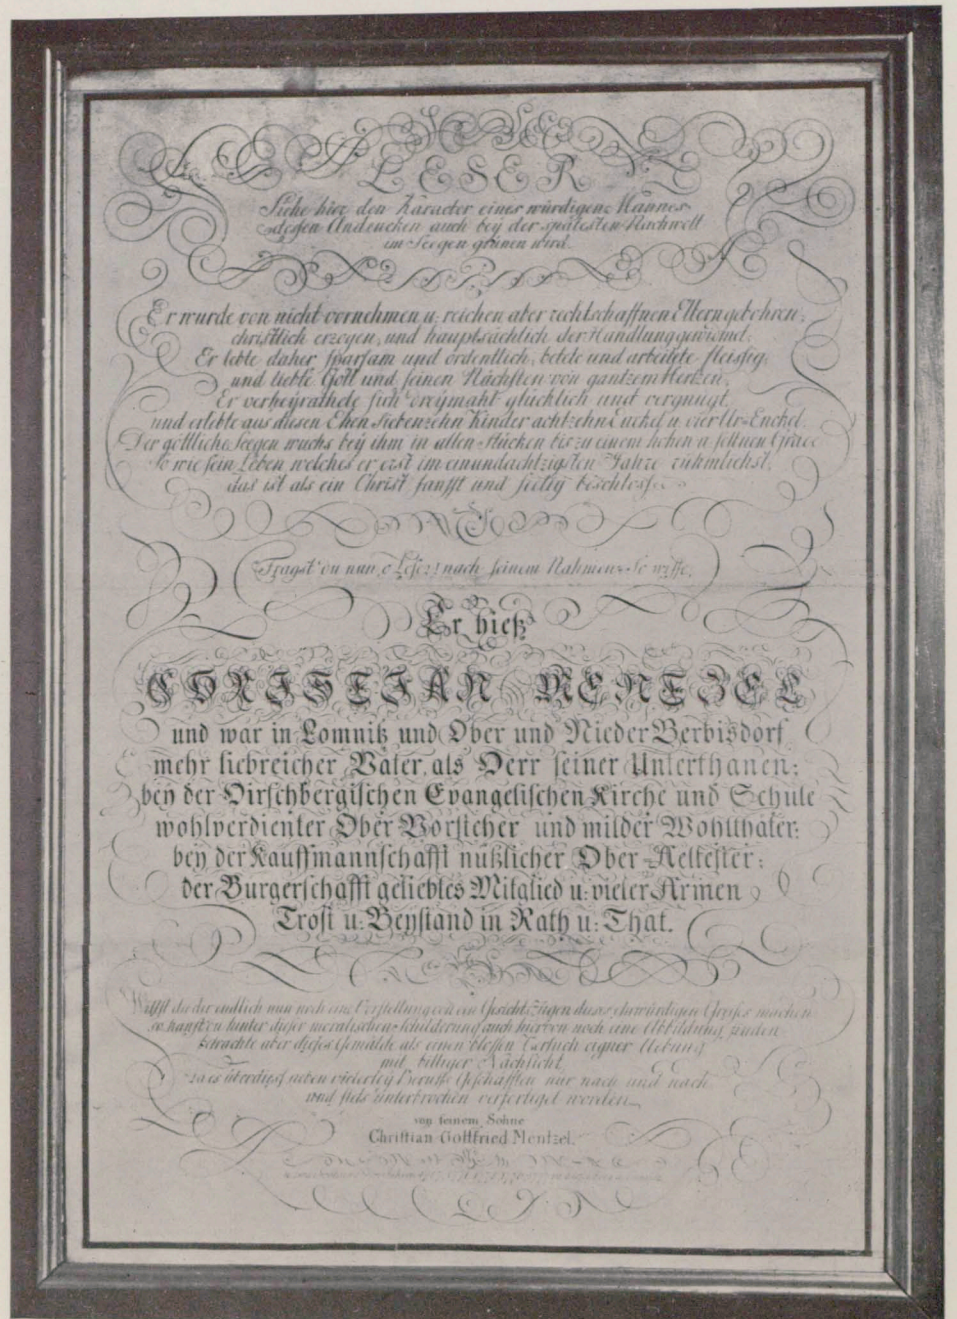 LESER
Siehe hier den Karacter eines würdigen Mannes
dessen Andencken auch bey der spätesten Nachwelt
im Seegen grünen wird.
Er wurde von nicht vornehmen u: reichen aber rechtschaffnen Eltern gebohren,
christlich erzogen, und hauptsächlich der Handlung gewidmet.
Er lebte daher sparsam und ordentlich, betete und arbeitete fleisig,
und liebte Gott und seinen Nächsten von gantzem Hertzen.
Er verheyrathete sich dreymahl glücklich und vergnügt,
und erlebte aus diesen Ehen siebenzehn Kinder achtzehn Enckel u. vier Ur-Enckel.
Der göttliche Seegen wuchs bey ihm in allen Stücken bis zu einem hohen u seltnen Grade
So wie sein Leben welches er erst im einundachtzigsten Jahre rühmlichst,
das ist als ein Christ sanfft und seelig beschlossen
Fragst du nun o Leser! nach seinem Nahmen: So wisse,
Er hieß
CHRISTIAN MENTZEL
und war in Lomnitz und Ober und Nieder Berbisdorf
mehr liebreicher Vater, als Herr seiner Unterthanen:
bey der Hirschbergischen Evangelischen Kirche und Schule
wohlverdienter Ober Vorsteher und milder Wohlthäter:
bey der Kauffmannschafft nützlicher Ober-Aeltester:
der Burgerschafft geliebtes Mitglied u: vieler Armen
Trost u: Beystand in Rath u: That.
Willst du dir endlich nun noch eine Vorstellung von den Gesichtszügen dieses ehrwürdigen Greises machen
so kanst du hinter dieser moralischen Schilderung auch hiervon noch eine Abbildung finden
betrachte aber dieses Gemälde als einen blossen Versuch eigner Uebung
mit billiger Nachsicht,
da es überdies neben vielerley Beruffs Geschäfften nur nach und nach
und stets unterbrochen verfertiget worden
von seinem Sohne
Christian Gottfried Mentzel.